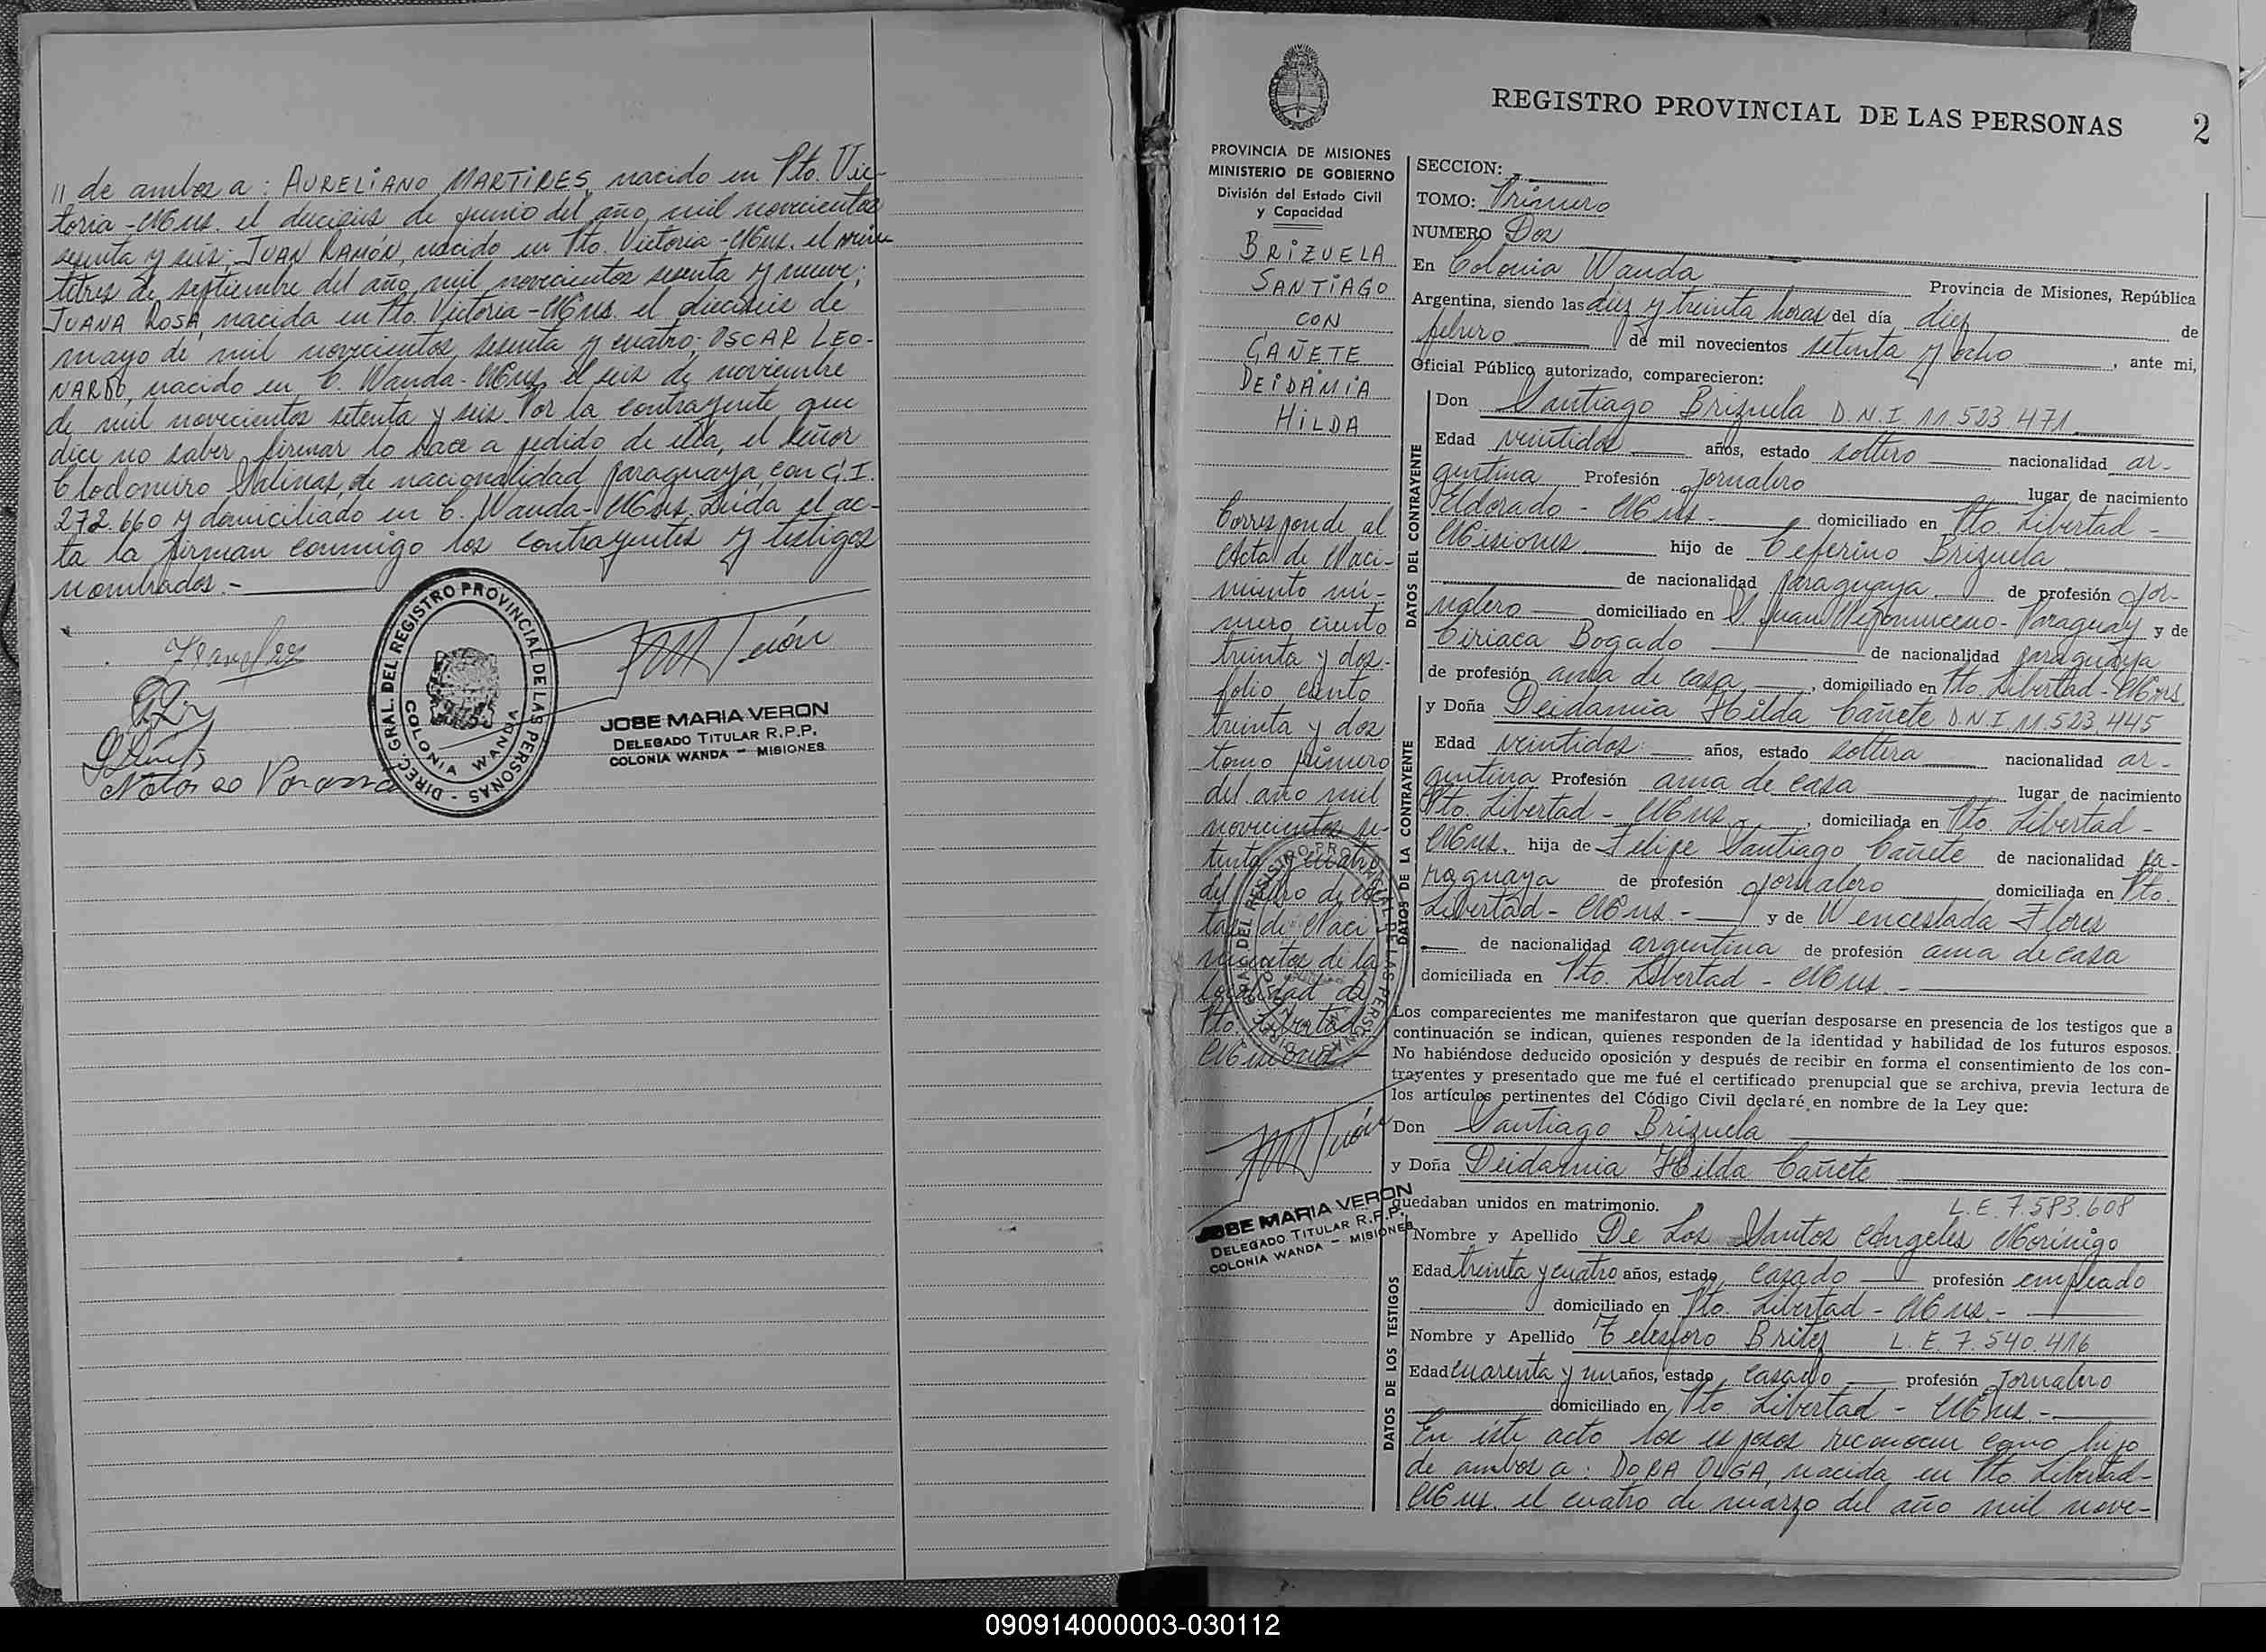 // de ambos a: AURELIANO MARTIRES, nacido en Pto. Vic-
toria - Mns. el dieciseis de junio del año mil novecientos
sesenta y seis; JUAN RAMÓN, nacido en Pto. Victoria - Mns. el vein
titres de septiembre del año mil novecientos sesenta y nueve;
JUANA ROSA, nacida en Pto. Victoria - Mns. el dieciseis de
mayo de mil novecientos sesenta y cuatro; OSCAR LEO-
NARDO, nacido en C. Wanda - Mns. el seis de noviembre
de mil novecientos setenta y seis. Por la contrayente que
dice no saber firmar lo hace a pedido de ella, el señor
Clodomiro Salinas, de nacionalidad paraguaya, con C.I.
272.660 y domiciliado en C. Wanda - Mns. Leida el ac-
ta la firman conmigo los contrayentes y testigos
nombrados.-
DIREC. GRAL. DEL REGISTRO PROVINCIAL DE LAS PERSONAS
COLONIA WANDA
JOSE MARIA VERON
DELEGADO TITULAR R.P.P.
COLONIA WANDA - MISIONES
REGISTRO PROVINCIAL DE LAS PERSONAS
2
PROVINCIA DE MISIONES
MINISTERIO DE GOBIERNO
División del Estado Civil
y Capacidad
BRIZUELA
SANTIAGO
CON
CAÑETE
DEIDAMIA
HILDA
Corresponde al
Acta de Naci-
miento nú-
mero ciento
treinta y dos-
folio ciento
treinta y dos
tomo primero
del año mil
novecientos se-
tenta y cuatro
del libro de Ac-
tas de Naci
mientos de la
localidad de
Pto. Libertad
Misiones.-
JOSE MARIA VERON
DELEGADO TITULAR R.P.P.
COLONIA WANDA - MISIONES
SECCION:
TOMO: Primero
NUMERO Dos
En Colonia Wanda Provincia de Misiones, República
Argentina, siendo las diez y treinta horas del día diez de
febrero de mil novecientos setenta y ocho, ante mi,
Oficial Público autorizado, comparecieron:
DATOS DEL CONTRAYENTE
Don Santiago Brizuela D.N.I. 11.523.471
Edad veintidos años, estado soltero nacionalidad ar-
gentina Profesión Jornalero lugar de nacimiento
Eldorado - Mns.- domiciliado en Pto. Libertad -
Misiones hijo de Ceferino Brizuela
de nacionalidad paraguaya de profesión Jor-
nalero domiciliado en S. Juan Nepomuceno - Paraguay y de
Ciriaca Bogado de nacionalidad paraguaya
de profesión ama de casa, domiciliado en Pto. Libertad - Mns.
DATOS DE LA CONTRAYENTE
y Doña Deidamia Hilda Cañete D.N.I. 11.523.445
Edad veintidos años, estado soltera nacionalidad ar-
gentina Profesión ama de casa lugar de nacimiento
Pto. Libertad - Mns.-, domiciliada en Pto. Libertad -
Mns. hija de Felipe Santiago Cañete de nacionalidad pa-
raguaya de profesión Jornalero domiciliada en Pto.
Libertad - Mns.- y de Wenceslada Flores
de nacionalidad argentina de profesión ama de casa
domiciliada en Pto. Libertad - Mns.-
Los comparecientes me manifestaron que querían desposarse en presencia de los testigos que a
continuación se indican, quienes responden de la identidad y habilidad de los futuros esposos.
No habiéndose deducido oposición y después de recibir en forma el consentimiento de los con-
trayentes y presentado que me fué el certificado prenupcial que se archiva, previa lectura de
los artículos pertinentes del Código Civil declaré en nombre de la Ley que:
Don Santiago Brizuela
y Doña Deidamia Hilda Cañete
quedaban unidos en matrimonio.
L.E. 7.583.608
DATOS DE LOS TESTIGOS
Nombre y Apellido De Los Santos Angeles Morínigo
Edad treinta y cuatro años, estado casado profesión empleado
domiciliado en Pto. Libertad - Mns.-
Nombre y Apellido Telesforo Britez L.E. 7.540.416
Edad cuarenta y un años, estado casado profesión Jornalero
domiciliado en Pto. Libertad - Mns.-
En éste acto los esposos reconocen como hijo
de ambos a: DORA OLGA, nacida en Pto. Libertad-
Mns. el cuatro de marzo del año mil nove-
090914000003-030112